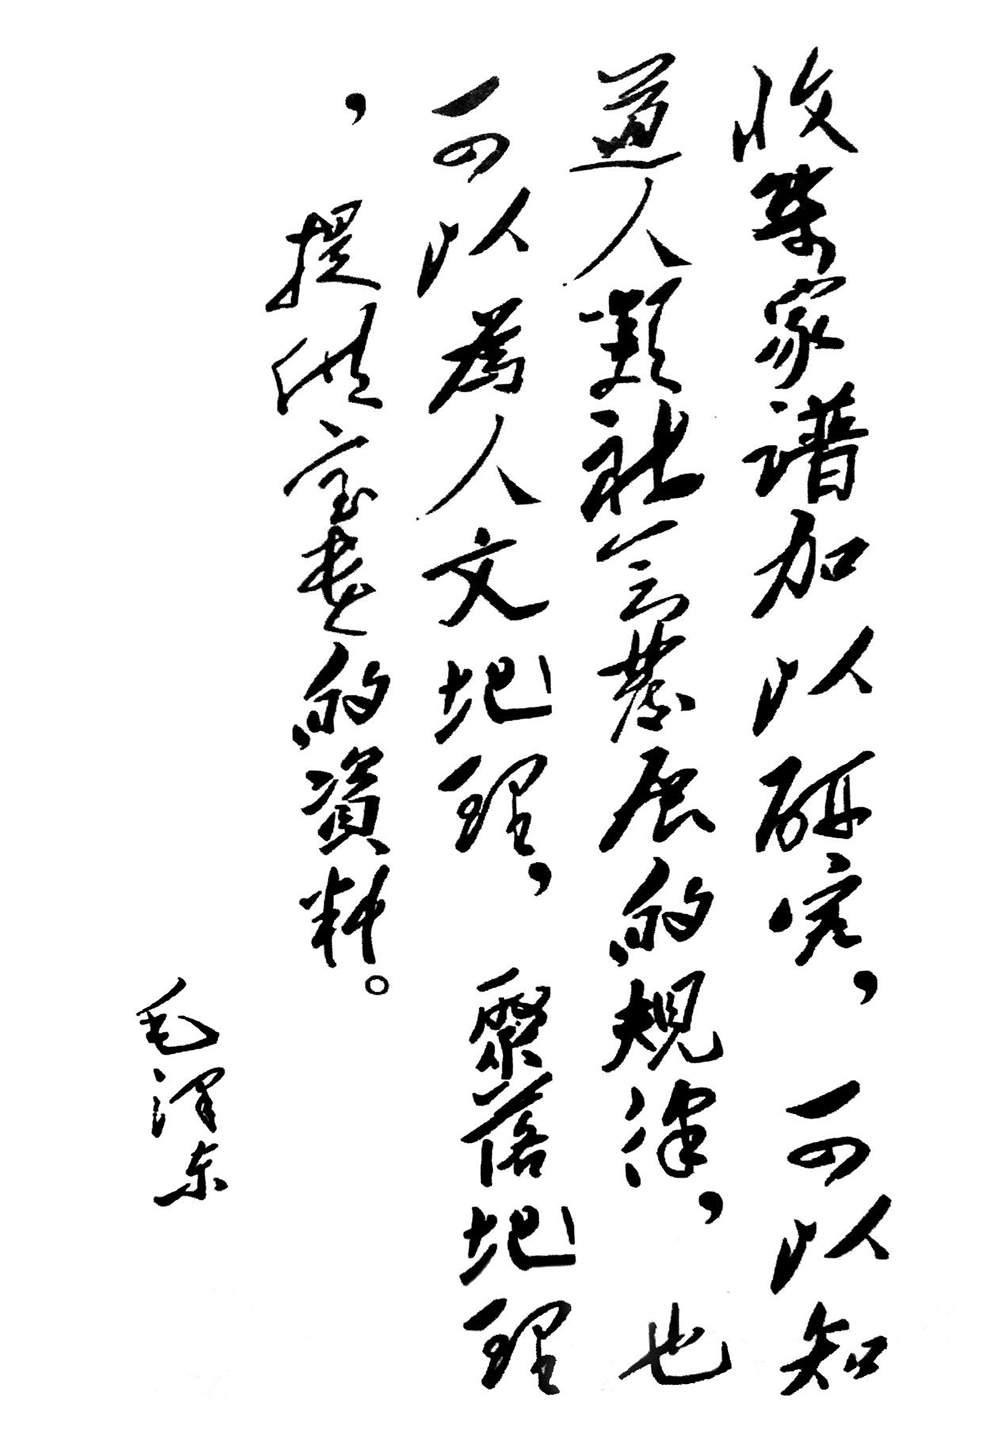 收集家谱加以研究，可以知
道人類社会發展的規律，也
可以為人文地理，聚落地理
，提供宝貴的資料。
毛泽东